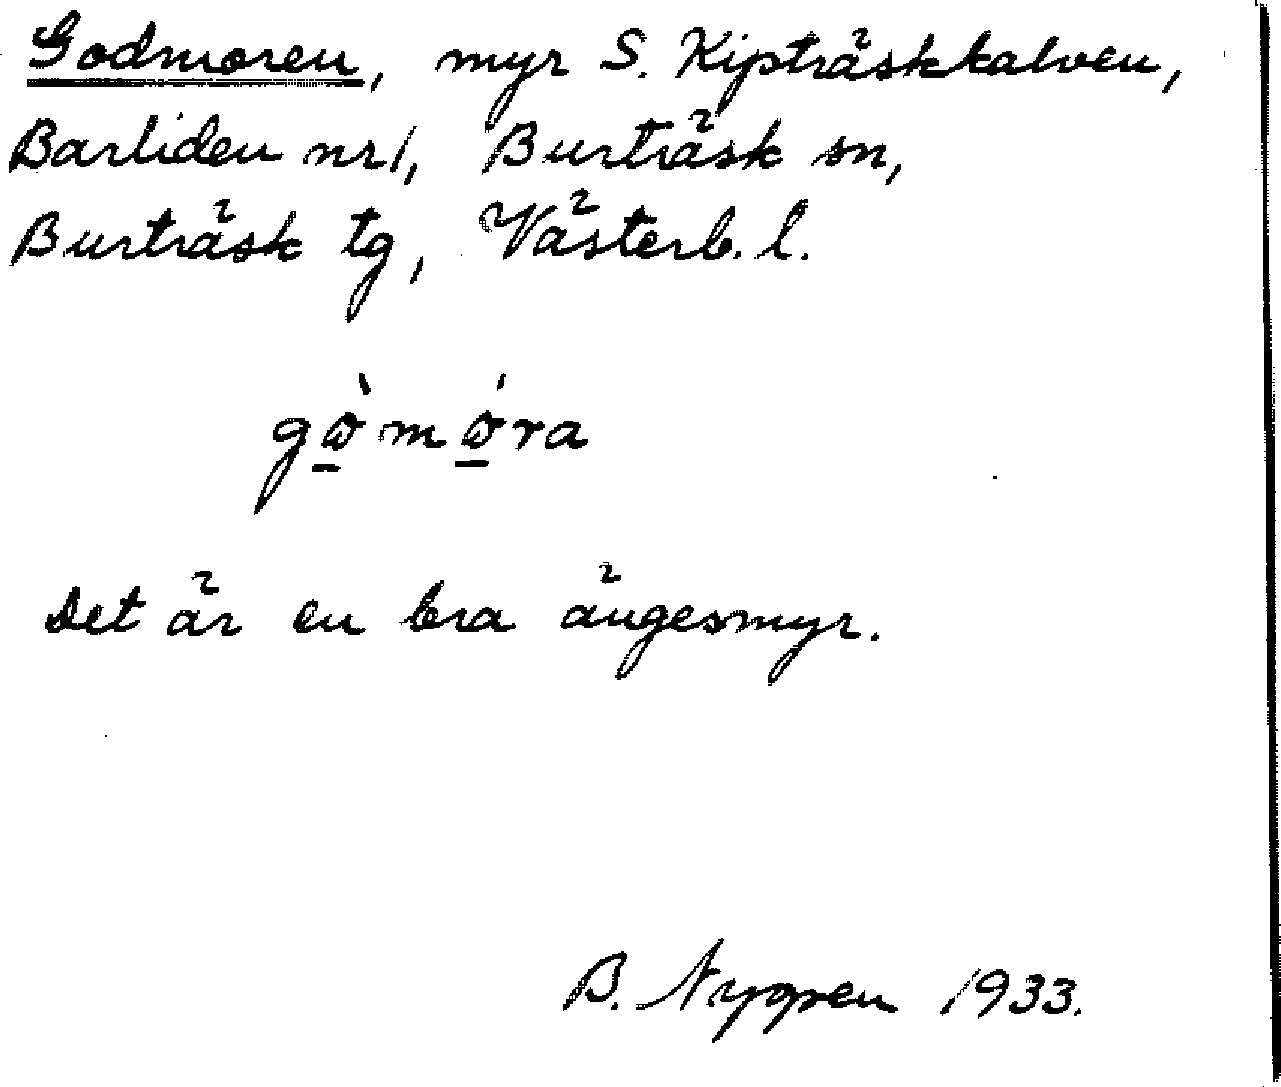 Godmoren, myr S. Kipträskkalven,
Barliden nr 1, Burträsk sn,
Burträsk tg, Västerb. l.
gὼ̱mώ̱ra
Det är en bra ängesmyr.
B. Nygren 1933.